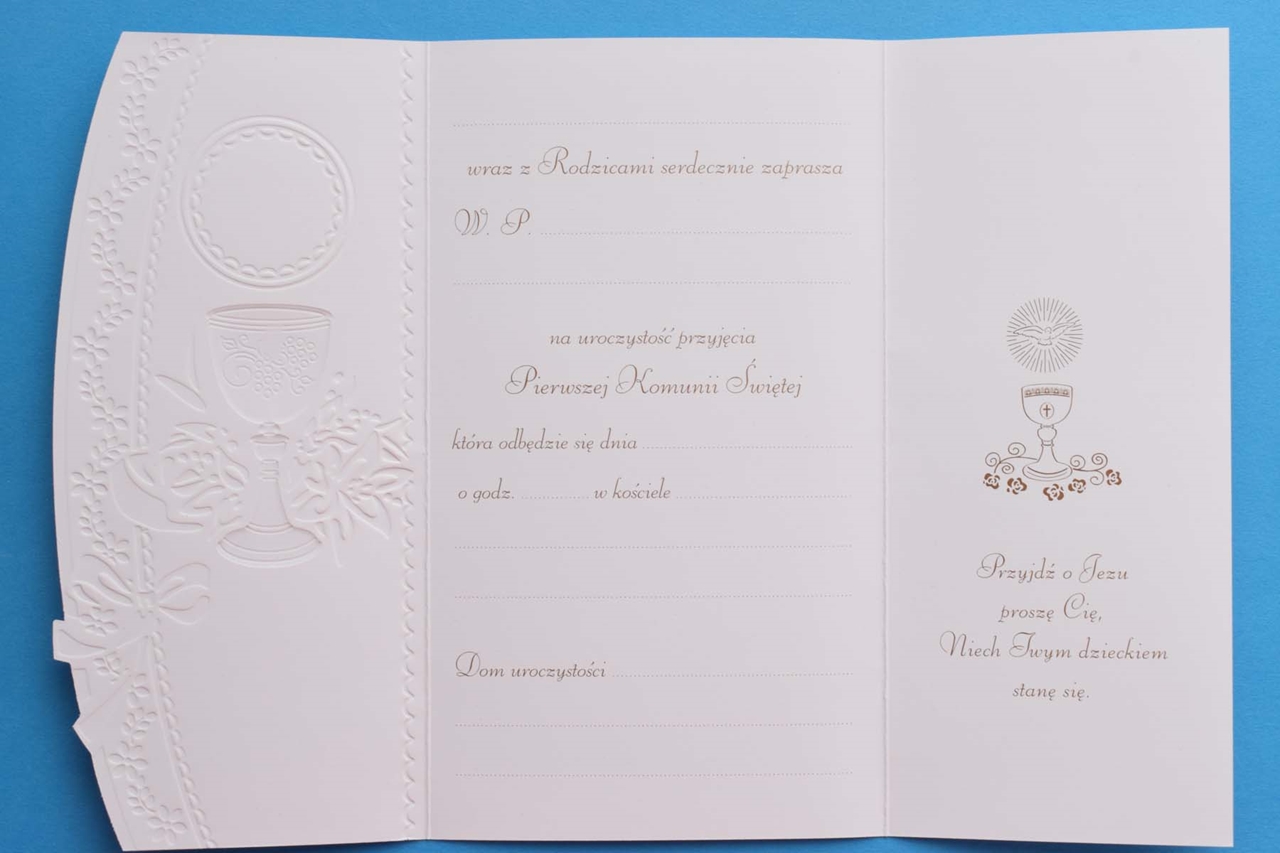 wraz z Rodzicami serdecznie zaprasza
W. P.
na uroczystość przyjęcia
Pierwszej Komunii Świętej
która odbędzie się dnia
o godz. w kościele
Dom uroczystości
Przyjdź o Jezu
proszę Cię,
Niech Twym dzieckiem
stanę się.